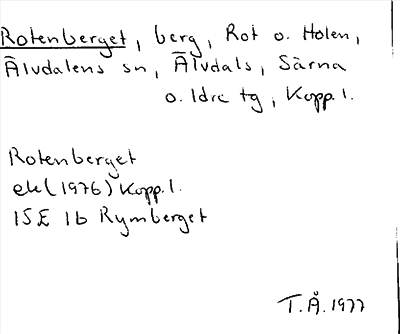 Rotenberget, berg, Rot o. Holen,
Älvdalens sn, Älvdals, Särna
o. Idre tg, Kopp.l.
Rotenberget
ek (1976) Kopp.l.
15E 1b Rymberget
T.Å. 1977